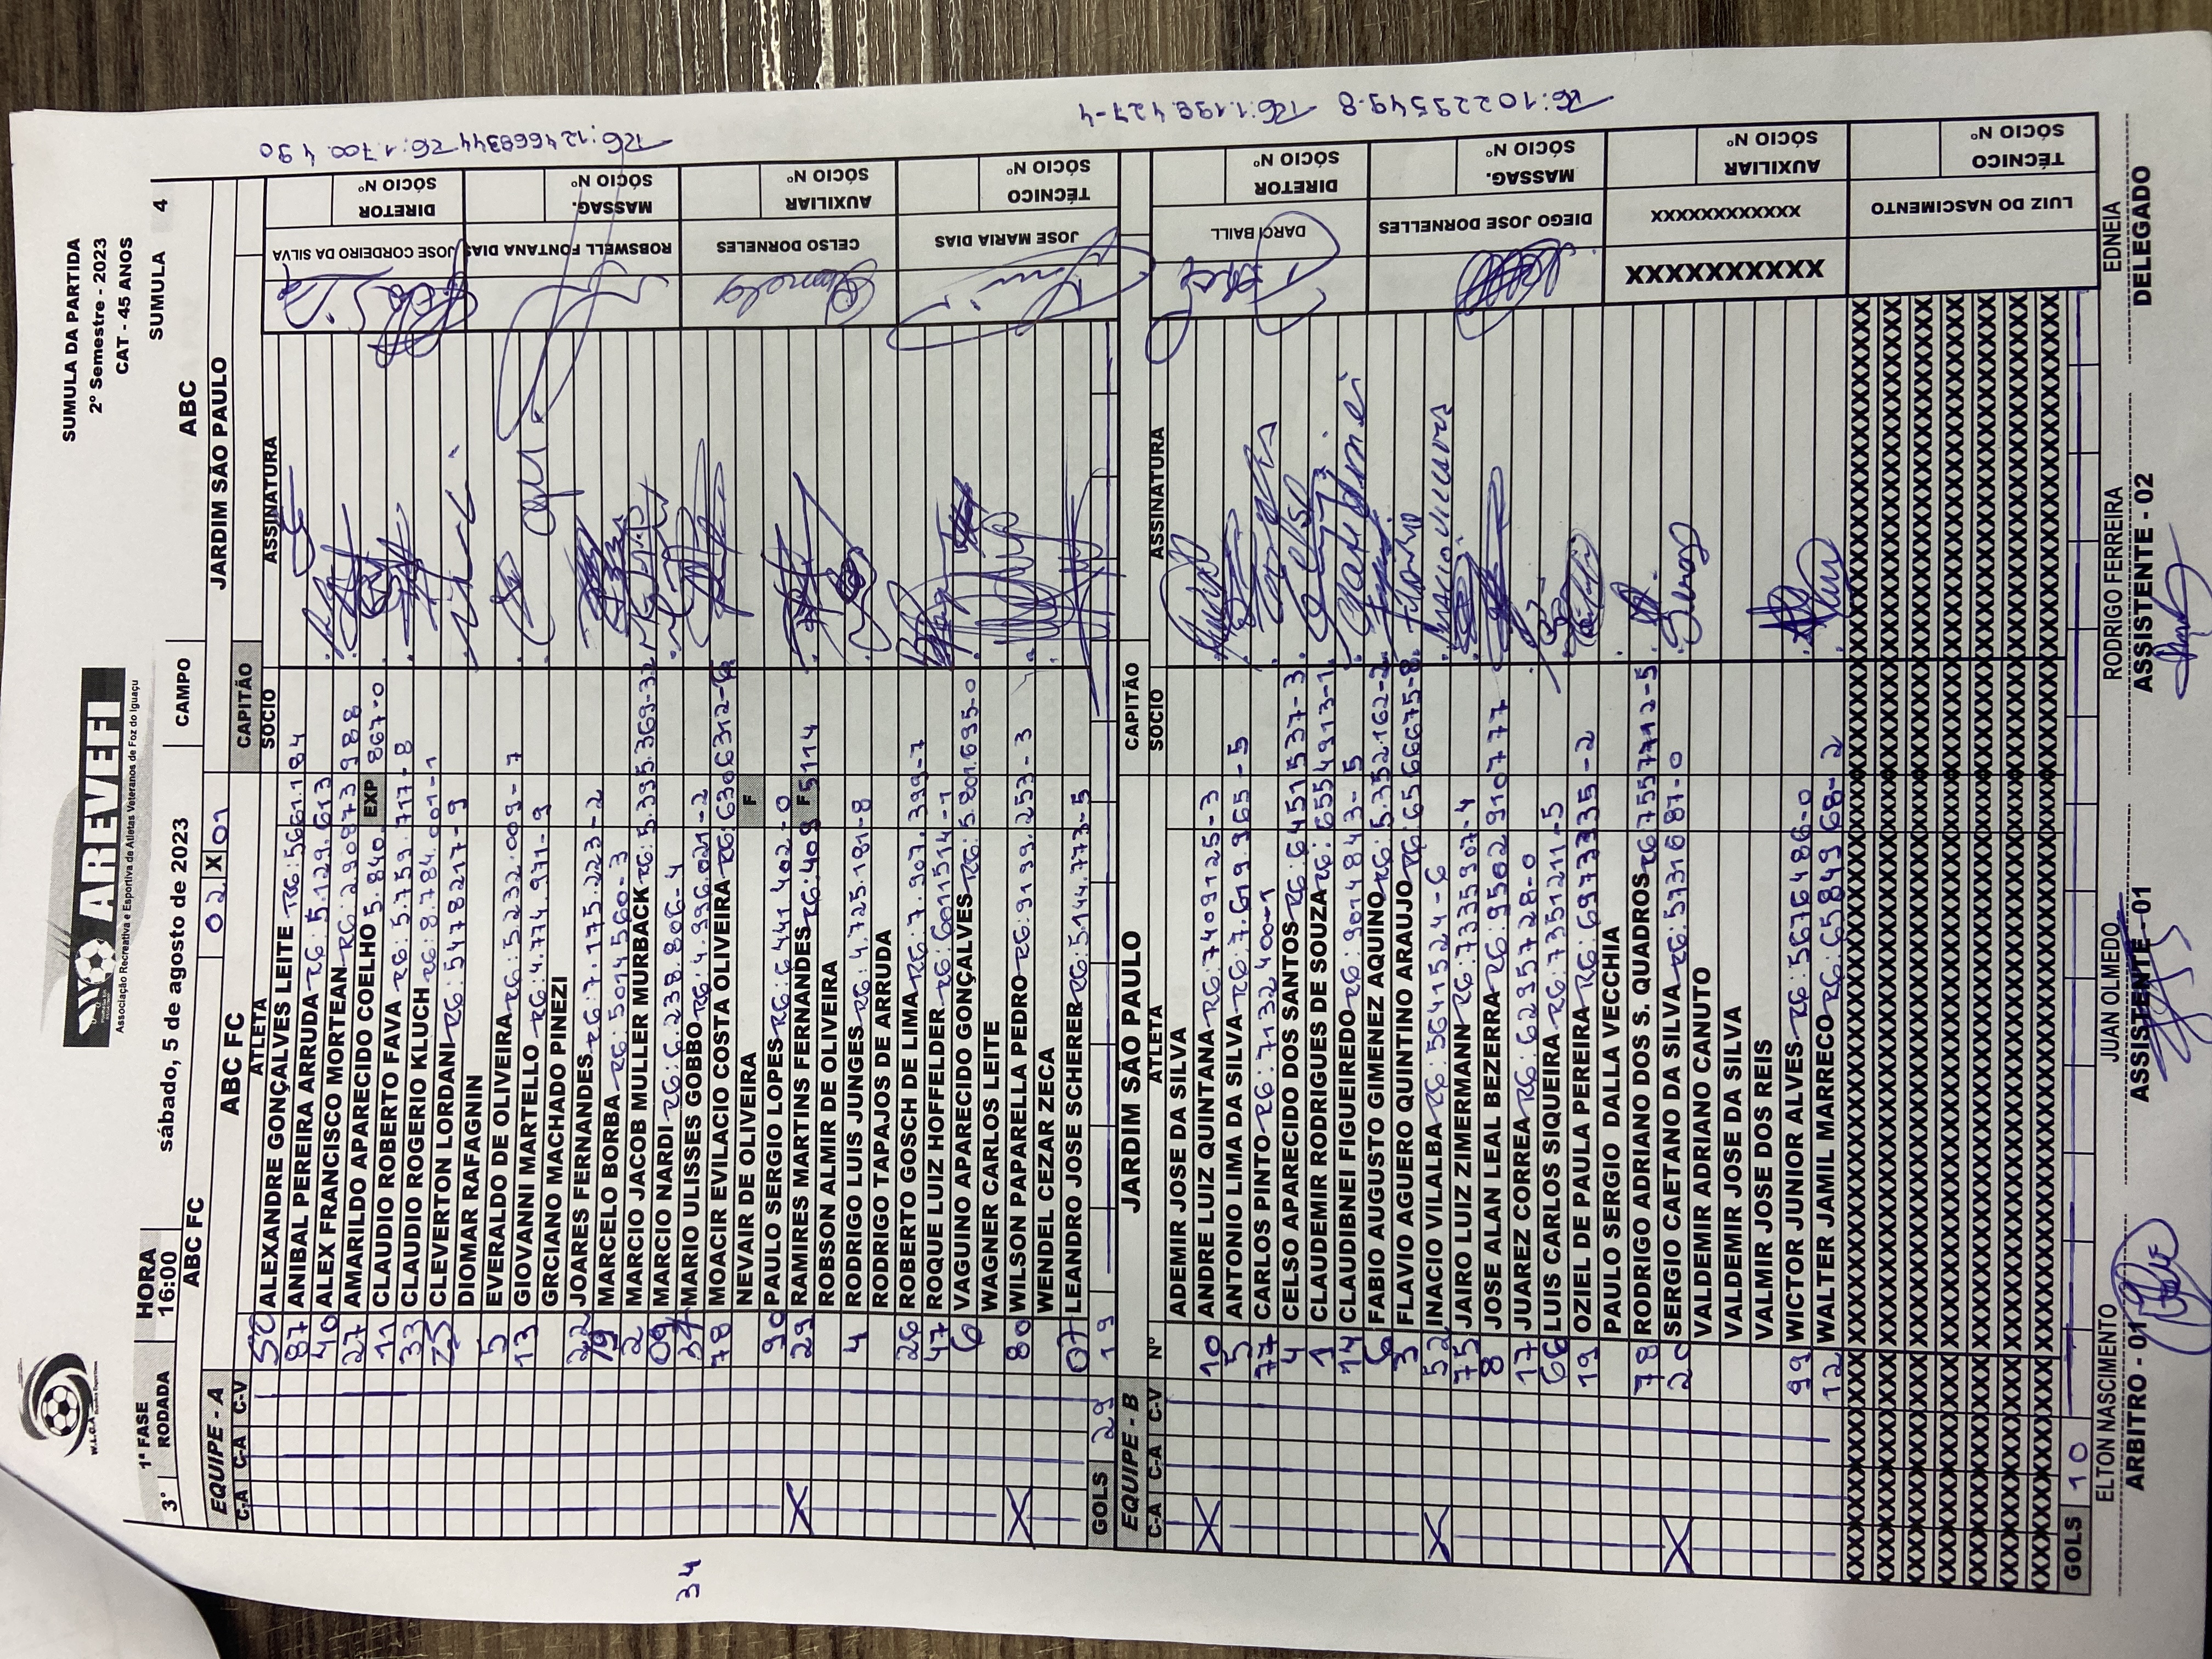 W.L.O.A
AREVEFI
Associação Recreativa e Esportiva de Atletas Veteranos de Foz do Iguaçu
SUMULA DA PARTIDA
2º Semestre - 2023
CAT - 45 ANOS
1ª FASE HORA
3º RODADA 16:00 sábado, 5 de agosto de 2023 CAMPO SUMULA 4
ABC FC 02 X 01 ABC
EQUIPE - A ABC FC JARDIM SÃO PAULO
CAPITÃO
C-A C-A C-V ATLETA SOCIO ASSINATURA
52 ALEXANDRE GONÇALVES LEITE RG: 5661.184
87 ANIBAL PEREIRA ARRUDA RG: 5.129.613
40 ALEX FRANCISCO MORTEAN RG: 2.90873988
27 AMARILDO APARECIDO COELHO 5.840. EXP 867-0
11 CLAUDIO ROBERTO FAVA RG: 5.759.717-8
33 CLAUDIO ROGERIO KLUCH RG: 8.784.001-1
25 CLEVERTON LORDANI RG: 5478217-9
DIOMAR RAFAGNIN
5 EVERALDO DE OLIVEIRA RG: 5.232.009-7
13 GIOVANNI MARTELLO RG: 4.774.971-9
GRCIANO MACHADO PINEZI
22 JOARES FERNANDES RG: 7.175.223-2
19 MARCELO BORBA RG: 5014560-3
2 MARCIO JACOB MULLER MURBACK RG: 5.395.369-32
09 MARCIO NARDI RG: 6.238.806-4
34 MARIO ULISSES GOBBO RG: 4.996.021-2
78 MOACIR EVILACIO COSTA OLIVEIRA RG: 6306312-6
NEVAIR DE OLIVEIRA F
90 PAULO SERGIO LOPES RG: 6441402-0
X 29 RAMIRES MARTINS FERNANDES RG: 409 F 5114
ROBSON ALMIR DE OLIVEIRA
4 RODRIGO LUIS JUNGES RG: 4.725.181-8
RODRIGO TAPAJOS DE ARRUDA
26 ROBERTO GOSCH DE LIMA RG: 7.907.399-7
47 ROQUE LUIZ HOFFELDER RG: 6011514-1
6 VAGUINO APARECIDO GONÇALVES RG: 5.801.695-0
WAGNER CARLOS LEITE
X 80 WILSON PAPARELLA PEDRO RG: 9199.253-3
WENDEL CEZAR ZECA
07 LEANDRO JOSE SCHERER RG: 5.144.773-5
GOLS 29 19
JOSE CORDEIRO DA SILVA DIRETOR SÓCIO Nº
ROBSWELL FONTANA DIAS MASSAG. SÓCIO Nº
CELSO DORNELES AUXILIAR SÓCIO Nº
JOSE MARIA DIAS TÉCNICO SÓCIO Nº
RG: 1.700.490
RG: 124669344
34
EQUIPE - B JARDIM SÃO PAULO CAPITÃO
C-A C-A C-V Nº ATLETA SOCIO ASSINATURA
ADEMIR JOSE DA SILVA
X 10 ANDRE LUIZ QUINTANA RG: 7409125-3
5 ANTONIO LIMA DA SILVA RG: 7.619.965-5
77 CARLOS PINTO RG: 7132400-1
4 CELSO APARECIDO DOS SANTOS RG: 6451537-3
1 CLAUDEMIR RODRIGUES DE SOUZA RG: 6554913-1
14 CLAUDIBNEI FIGUEIREDO RG: 9014843-5
6 FABIO AUGUSTO GIMENEZ AQUINO RG: 5.352162-2
3 FLAVIO AGUERO QUINTINO ARAUJO RG: 6566675-8
X 52 INACIO VILALBA RG: 5641524-6
75 JAIRO LUIZ ZIMERMANN RG: 7335907-4
8 JOSE ALAN LEAL BEZERRA RG: 9502910777
17 JUAREZ CORREA RG: 6295728-0
66 LUIS CARLOS SIQUEIRA RG: 7351211-5
19 OZIEL DE PAULA PEREIRA RG: 6973335-2
PAULO SERGIO DALLA VECCHIA
78 RODRIGO ADRIANO DOS S. QUADROS RG 67557712-5
X 20 SERGIO CAETANO DA SILVA RG: 5731087-0
VALDEMIR ADRIANO CANUTO
VALDEMIR JOSE DA SILVA
VALMIR JOSE DOS REIS
99 WICTOR JUNIOR ALVES RG: 5676486-0
12 WALTER JAMIL MARRECO RG: 6584968-2
GOLS 10
DARCI BAILL DIRETOR SÓCIO Nº
DIEGO JOSE DORNELLES MASSAG. SÓCIO Nº
XXXXXXXXXX XXXXXXXXXXXX AUXILIAR SÓCIO Nº
LUIZ DO NASCIMENTO TÉCNICO SÓCIO Nº
RG: 1.198.427-4
RG: 10229549-8
ELTON NASCIMENTO JUAN OLMEDO RODRIGO FERREIRA EDNEIA
ARBITRO - 01 ASSISTENTE - 01 ASSISTENTE - 02 DELEGADO